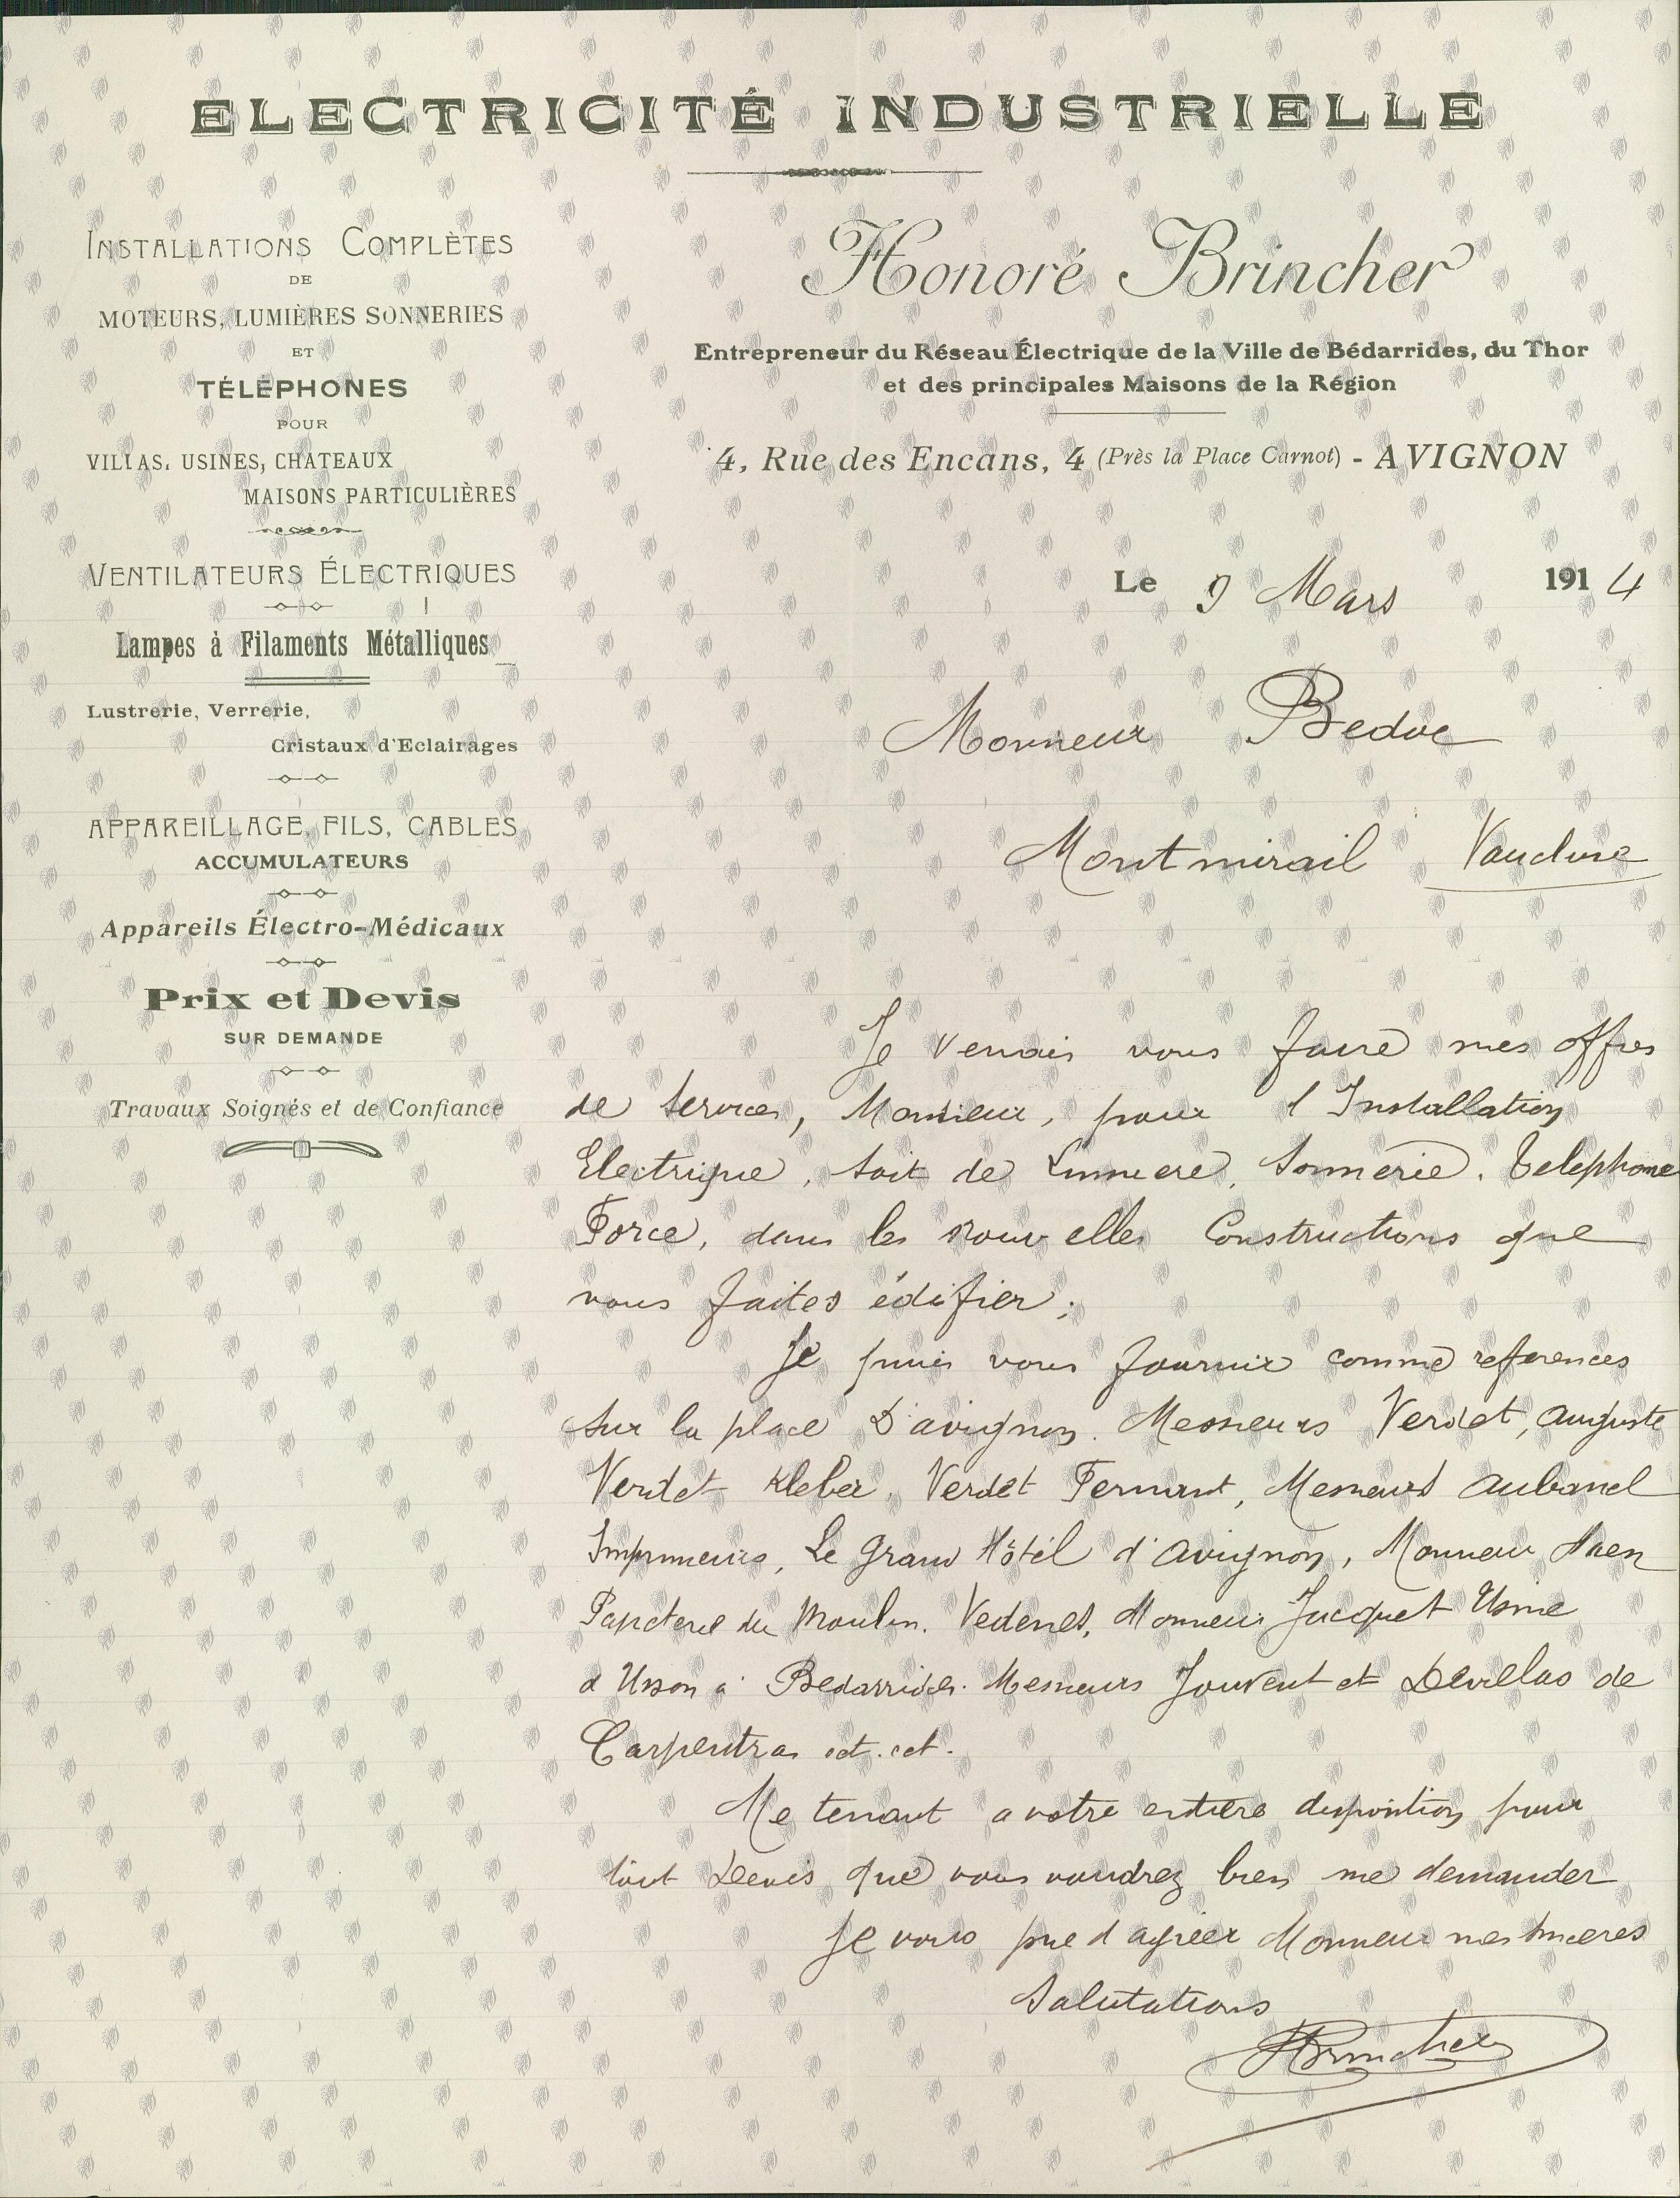 ELECTRICITÉ INDUSTRIELLE
INSTALLATIONS COMPLÈTES
DE
MOTEURS, LUMIÈRES SONNERIES
ET
TÉLÉPHONES
POUR
VILLAS, USINES, CHATEAUX
MAISONS PARTICULIÈRES
VENTILATEURS ÉLECTRIQUES
Lampes à Filaments Métalliques
Lustrerie, Verrerie,
Cristaux d'Eclairages
APPAREILLAGE, FILS, CABLES
ACCUMULATEURS
Appareils Électro-Médicaux
Prix et Devis
SUR DEMANDE
Travaux Soignés et de Confiance
Honoré Brincher
Entrepreneur du Réseau Électrique de la Ville de Bédarrides, du Thor
et des principales Maisons de la Région
4, Rue des Encans, 4 (Près la Place Carnot) - AVIGNON
Le 9 Mars 1914
Monsieur
Montmirail Vaucluse
Je venais vous faire mes offres
de services, Monsieur, pour l Installation
Electrique, soit de Lumiere, Sonnerie. Telephone
Force, dans les nouvelles Constructions que
vous faites édifier;
Je puis vous fournir comme references
sur la place D'avignon. Messieurs Verdet, auguste
Verdet Kleber, Verdet Fernant, Messieurs aubanel
Imprimeurs, Le Grand Hôtel d'avignon, Monsieur
Papeterie du Moulin. Vedenes, Monsieur Jacquet Usine
à Bedarrides. Messieurs Jouvent et Devillas de
Carpentras ect. ect.
Me tenant a votre entiere disposition pour
tout Devis que vous voudrez bien me demander
Je vous prie d agréer Monsieur mes sinceres
Salutations
HBrincher